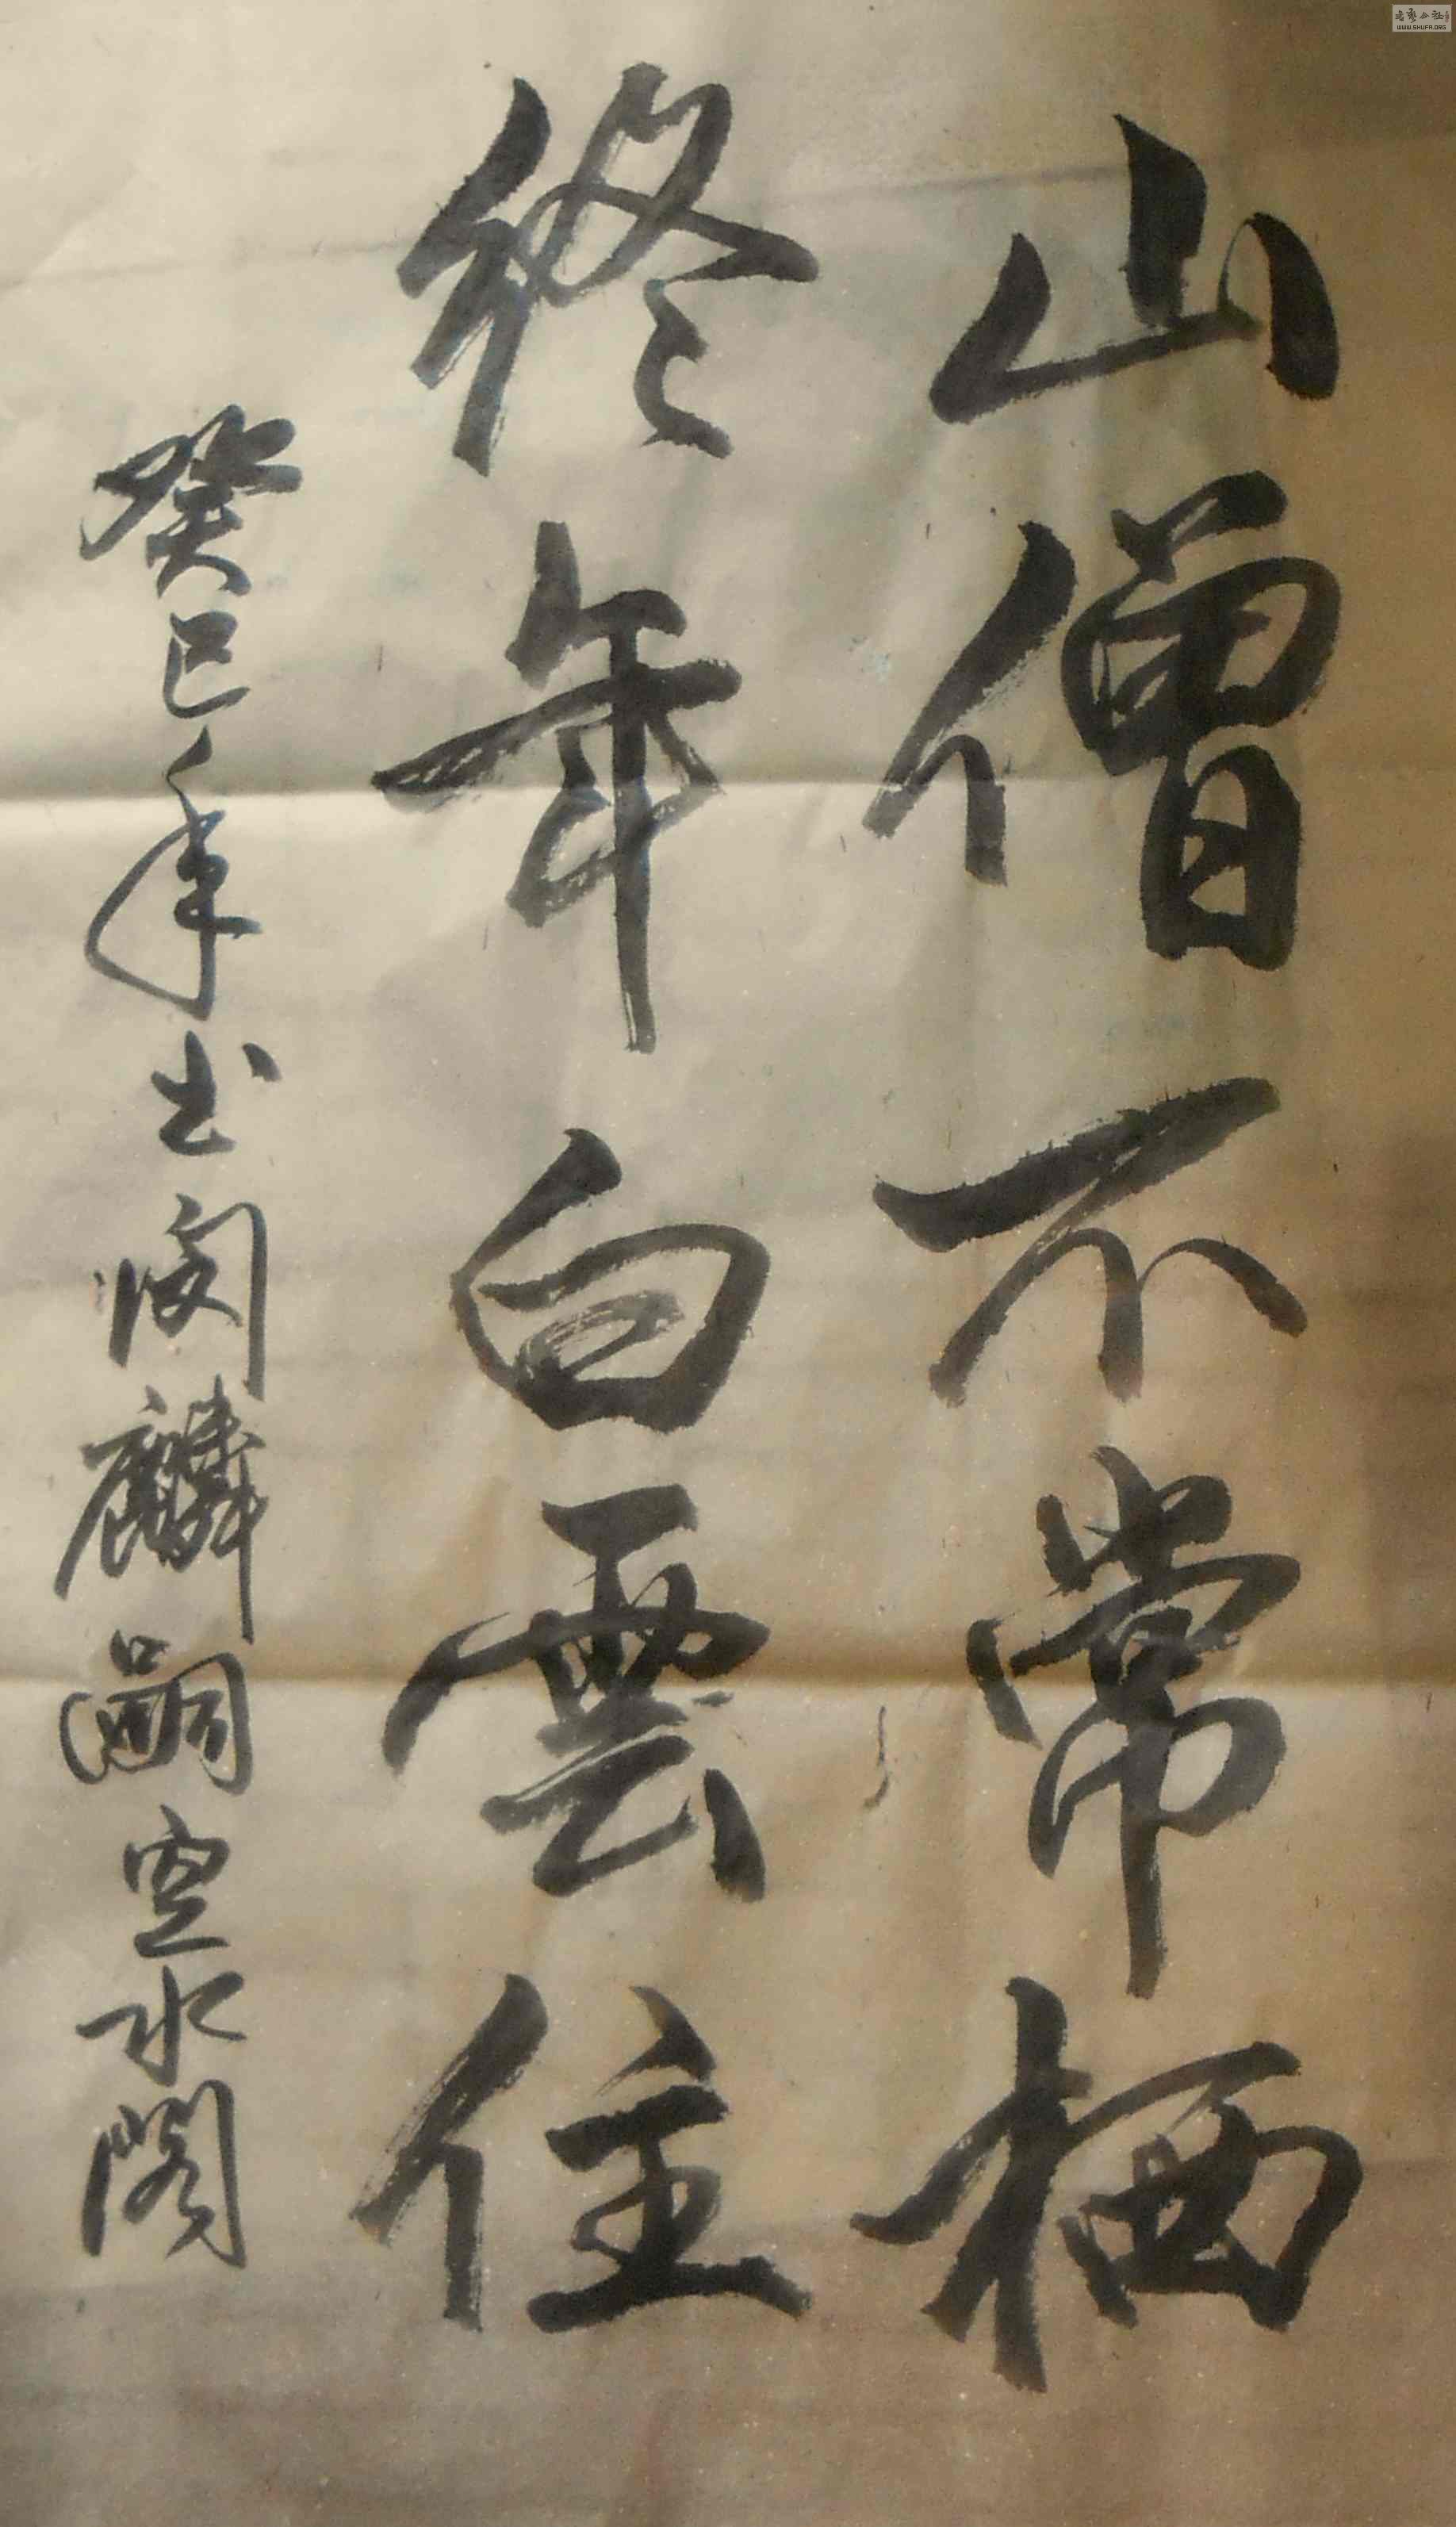 山僧不常栖
終年白雲住
癸巳年书闵麟嗣空水阁
WWW.SHUFA.ORG